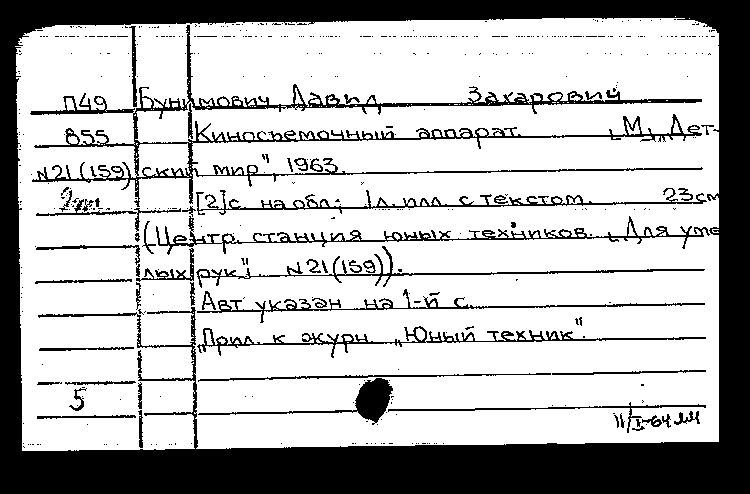 П49 Бунимович, Давид Захарович
855 Киносъемочный аппарат. [М.], "Дет-
N21(159) ский мир", 1963.
[2]с. на обл; 1л. илл. с текстом. 23см
(Центр. станция юных техников. "Для уме
лых рук". N21(159)).
Авт указан на 1-й с.
"Прил. к журн. "Юный техник".
5
11/I-64